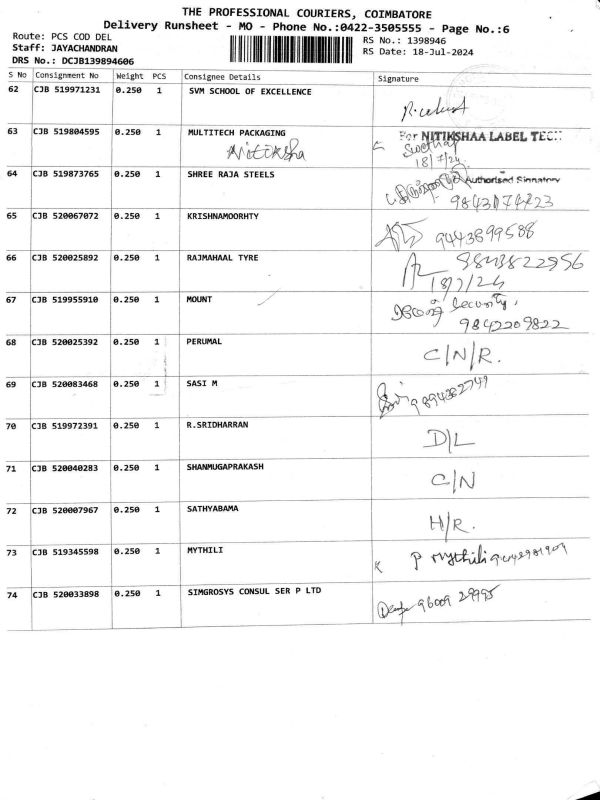 THE PROFESSIONAL COURIERS, COIMBATORE
Delivery Runsheet - MO - Phone No.:0422-3505555 - Page No.:6
Route: PCS COD DEL
Staff: JAYACHANDRAN
DRS No.: DCJB139894606
RS No.: 1398946
RS Date: 18-Jul-2024
S No Consignment No Weight PCS Consignee Details Signature
62 CJB 519971231 0.250 1 SVM SCHOOL OF EXCELLENCE
63 CJB 519804595 0.250 1 MULTITECH PACKAGING For NITIKSHAA LABEL TECH
Nitiksha
18/7/24
64 CJB 519873765 0.250 1 SHREE RAJA STEELS Authorised Signatory
65 CJB 520067072 0.250 1 KRISHNAMOORHTY 9443899588
66 CJB 520025892 0.250 1 RAJMAHAAL TYRE 9843822956
18/7/24
67 CJB 519955910 0.250 1 MOUNT Security,
9842209822
68 CJB 520025392 0.250 1 PERUMAL C/N/R.
69 CJB 520083468 0.250 1 SASI M 9894382749
70 CJB 519972391 0.250 1 R.SRIDHARRAN D/L
71 CJB 520040283 0.250 1 SHANMUGAPRAKASH C/N
72 CJB 520007967 0.250 1 SATHYABAMA H/R.
73 CJB 519345598 0.250 1 MYTHILI P Mythili
74 CJB 520033898 0.250 1 SIMGROSYS CONSUL SER P LTD 96009 29995